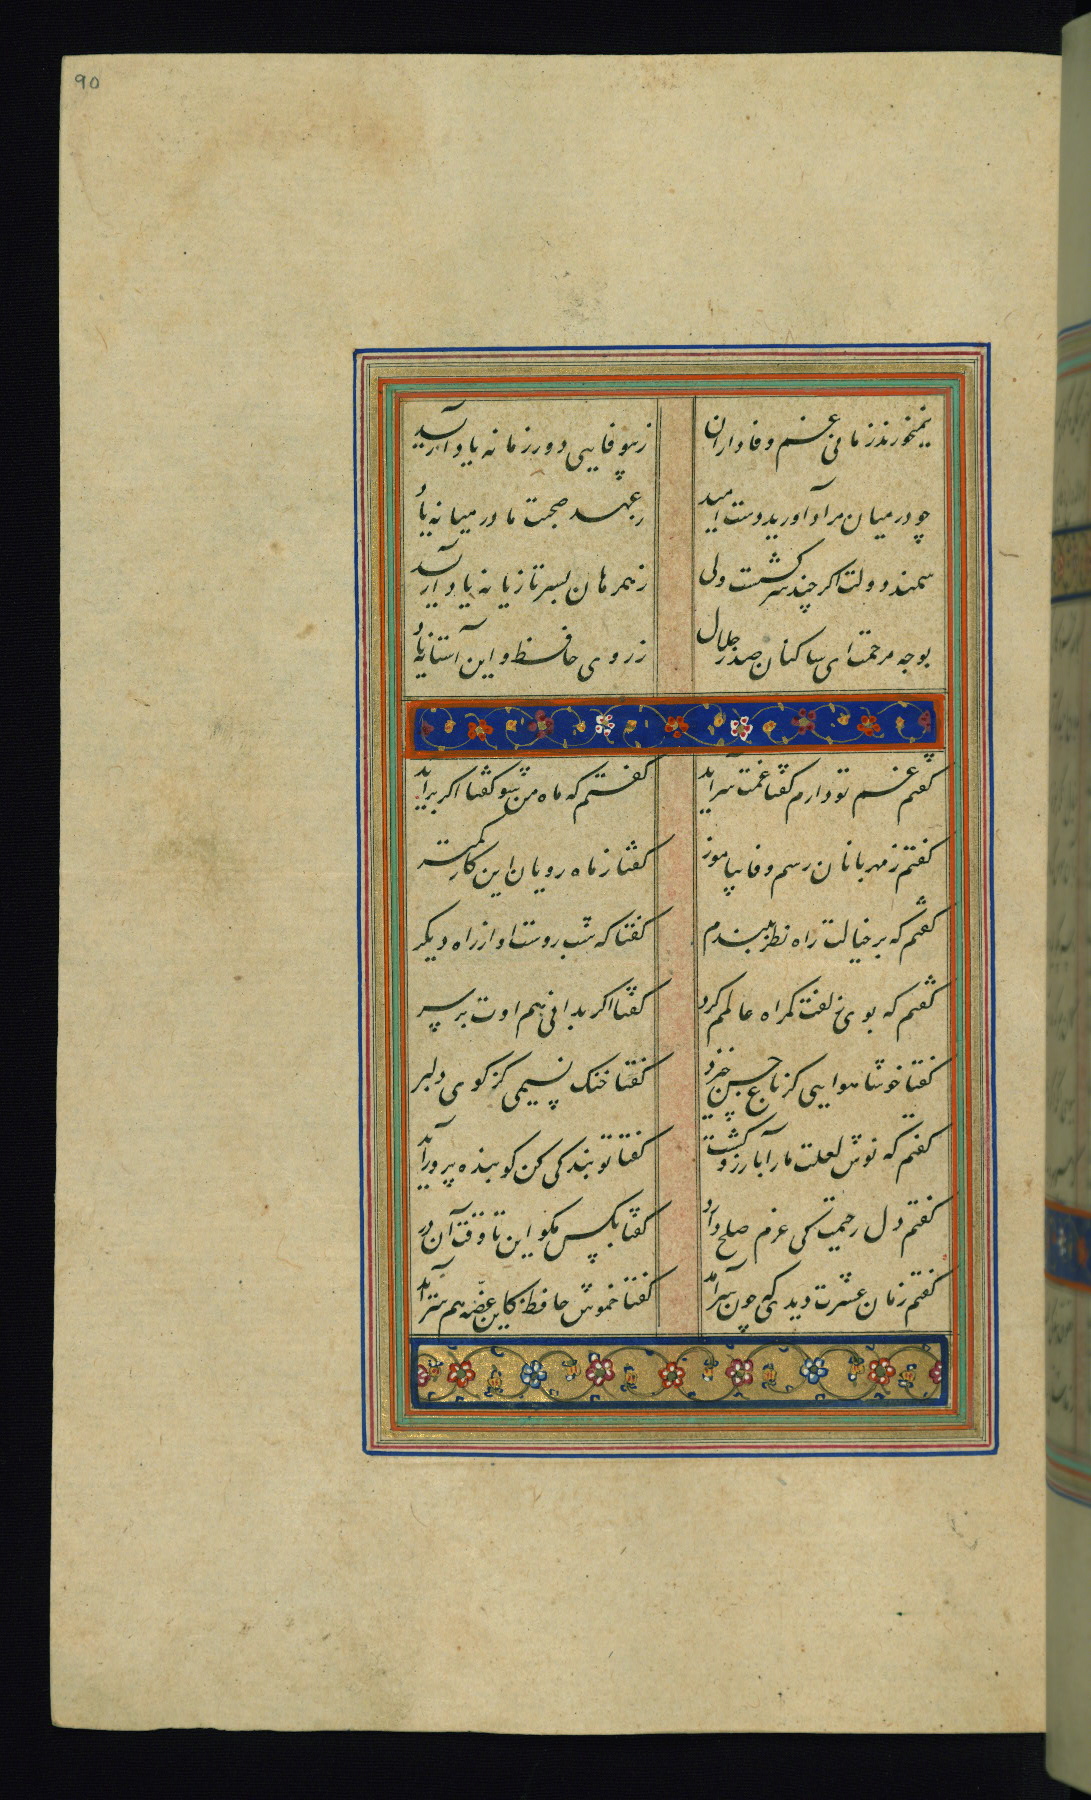 90
نمیخورند زمانی غم وفاداران
ز بیوفایی دور زمانه یاد آرید
چو در میان مراد آورید دست امید
ز عهد صحبت ما در میانه یاد
سمند دولت اگر چند سرکشست ولی
ز همرهان بسر تازیانه یاد آرید
بوجه مرحمت ای ساکنان صدر جلال
ز روی حافظ و این آستانه یاد
گفتم غم تو دارم گفتا غمت سرآید
گفتم که ماه من شو گفتا اگر برآید
گفتم ز مهربانان رسم وفا بیاموز
گفتا ز ماه رویان این کار کمتر
گفتم که بر خیالت راه نظر ببندم
گفتا که شب روست او از راه دیگر
گفتم که بوی زلفت گمراه عالمم کرد
گفتا اگر بدانی هم اوت برسر
گفتا خوشا هوایی کز باغ حسن خیزد
گفتا خنک نسیمی کز کوی دلبر
گفتم که نوش لعلت ما را بآرزو کشت
گفتا تو بندگی کن کو بنده پرور آید
گفتم دل رحیمت کی عزم صلح دارد
گفتا بکس مگو این تا وقت آن در
گفتم زمان عشرت دیدی که چون سرآمد
گفتا خموش حافظ کاین غصه هم سرآید